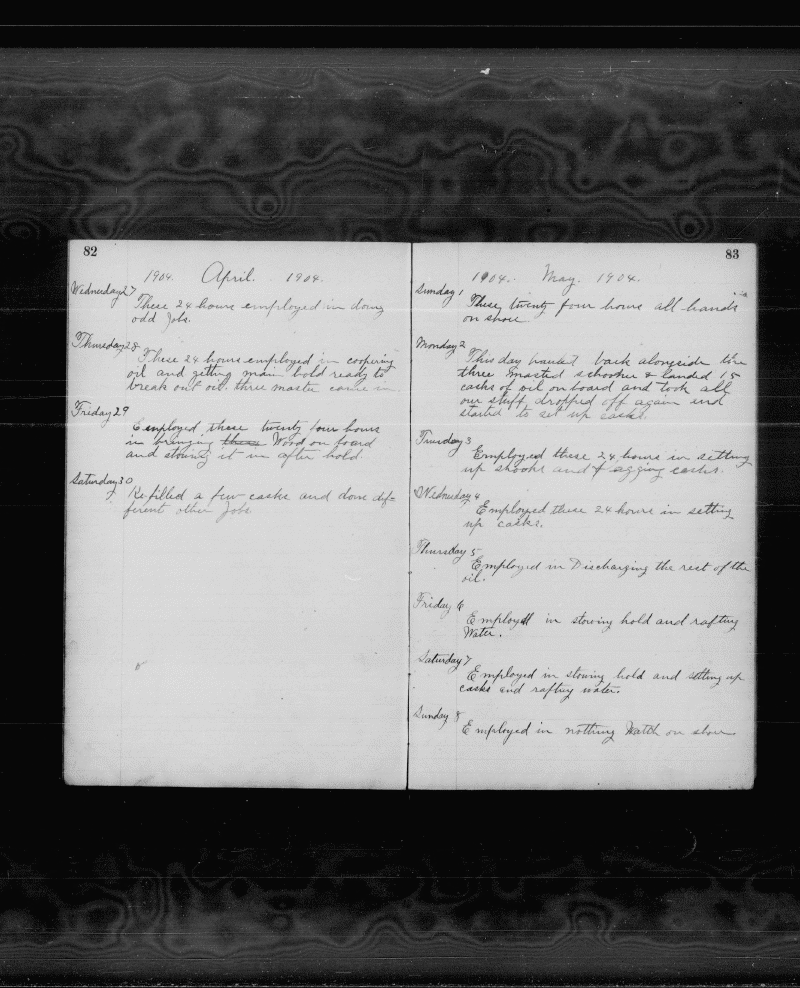 82
1904. April. 1904.
Wednesday 27
These 24 hours employed in doing
odd Jobs.
Thursday 28
These 24 hours employed in coopering
oil and getting main hold ready to
break out oil. three master came in
Friday 29
Employed these twenty four hours
in bringing these Wood on board
and stowing it in after hold.
Saturday 30
Refilled a few casks and done dif=
ferent other Jobs
83
1904. May. 1904.
Sunday 1
These twenty four hours all hands
on shore.
Monday 2
This day hauled back alongside the
three masted schooner & landed 15
casks of oil on board and took all
our stuff dropped off again and
started to set up casks.
Tuesday 3
Employed these 24 hours in setting
up shooks and flagging casks.
Wednesday 4
Employed these 24 hours in setting
up casks.
Thursday 5
Employed in Discharging the rest of the
oil.
Friday 6
Employed in stowing hold and rafting
Water.
Saturday 7
Employed in stowing hold and setting up
casks and rafting water.
Sunday 8
Employed in nothing Watch on shore